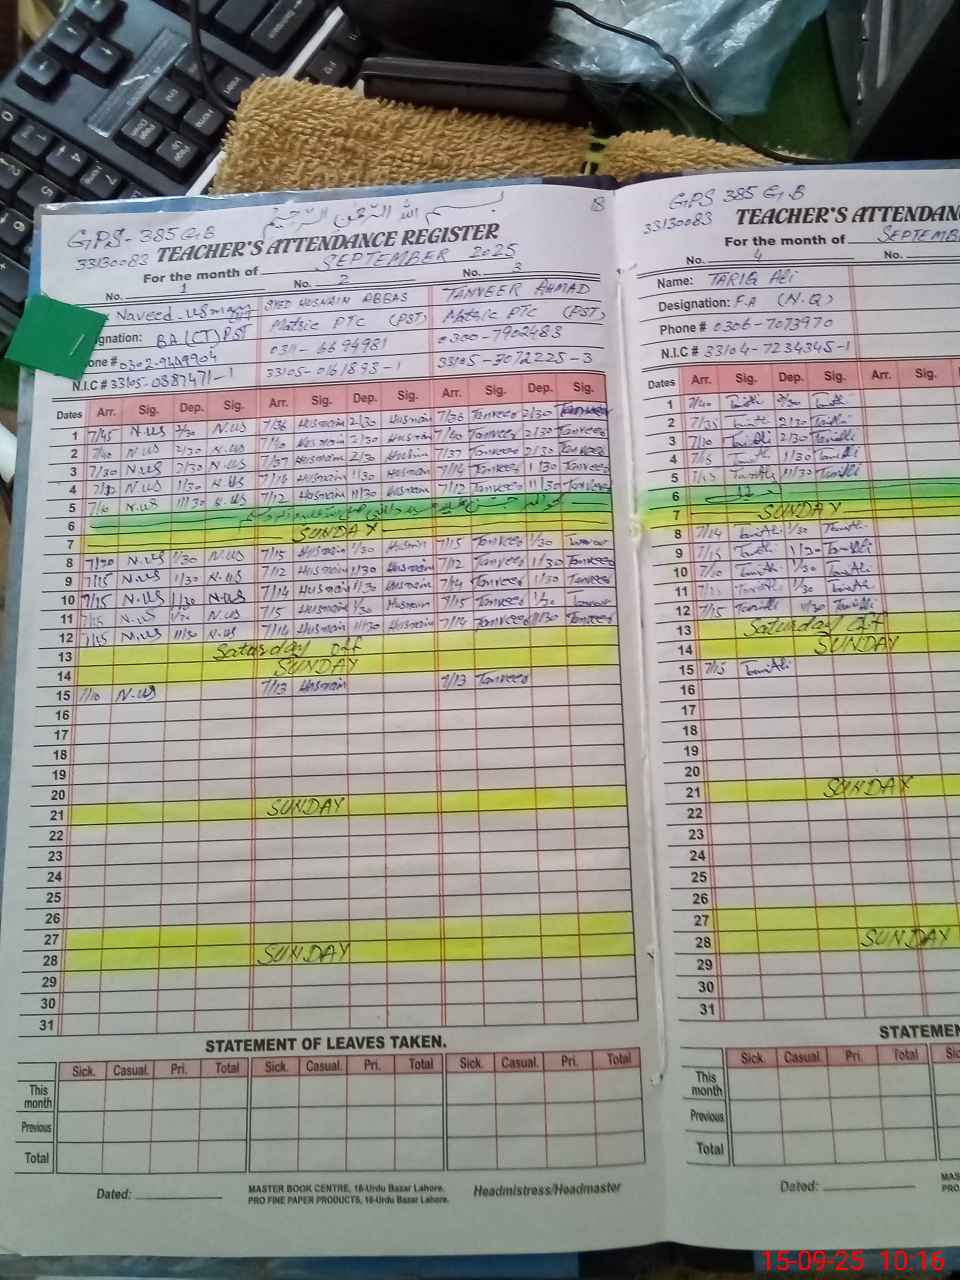 بسم الله الرحمن الرحيم
18
GPS-385 GB
33130083
TEACHER'S ATTENDANCE REGISTER
For the month of SEPTEMBER 2025
No. 1 No. 2 No. 3
Naveed SYED HUSNAIN ABBAS TANVEER AHMAD
gnation: BA (CT) PST Matric PTC (PST) Matric PTC (PST)
one # 0311-6694981 0300-7902483
N.I.C # 33105-0387471-1 33105-0161893-1 33105-3072225-3
Dates Arr. Sig. Dep. Sig. Arr. Sig. Dep. Sig. Arr. Sig. Dep. Sig.
1 7/45 N.US 2/30 N.US 7/36 Husnain 2/30 Husnain 7/36 Tanveer 2/30 Tanveer
2 7/40 N.US 2/30 N.US 7/40 Husnain 2/30 Husnain 7/40 Tanveer 2/30 Tanveer
3 7/30 N.US 2/30 N.US 7/37 Husnain 2/30 Husnain 7/37 Tanveer 2/30 Tanveer
4 N.US 1/30 N.US 7/14 Husnain 1/30 Husnain 7/14 Tanveer 1/30 Tanveer
5 7/10 N.US 11/30 N.US 7/12 Husnain 11/30 Husnain 7/12 Tanveer 11/30 Tanveer
6
7 SUNDAY
8 7/20 N.US 1/30 N.US 7/15 Husnain 1/30 Husnain 7/15 Tanveer 1/30 Tanveer
9 7/15 N.US 1/30 N.US 7/12 Husnain 1/30 Husnain 7/12 Tanveer 1/30 Tanveer
10 7/15 N.US 1/30 N.US 7/14 Husnain 1/30 Husnain 7/14 Tanveer 1/30 Tanveer
11 7/15 N.US 1/30 N.US 7/15 Husnain 1/30 Husnain 7/15 Tanveer 1/30 Tanveer
12 7/15 N.US 11/30 N.US 7/14 Husnain 11/30 Husnain 7/14 Tanveer 11/30 Tanveer
13 Saturday Off
14 SUNDAY
15 7/10 N.US 7/13 Husnain 7/13 Tanveer
16
17
18
19
20
21 SUNDAY
22
23
24
25
26
27
28 SUNDAY
29
30
31
STATEMENT OF LEAVES TAKEN.
Sick. Casual. Pri. Total Sick. Casual. Pri. Total Sick. Casual. Pri. Total
This month
Previous
Total
Dated:
MASTER BOOK CENTRE, 16-Urdu Bazar Lahore.
PRO FINE PAPER PRODUCTS, 16-Urdu Bazar Lahore.
Headmistress/Headmaster
GPS 385 GB
33130083
TEACHER'S ATTENDAN
For the month of SEPTEMB
No. 4 No.
Name: TARIQ Ali
Designation: F.A (N.Q)
Phone # 0306-7073970
N.I.C # 33104-7234345-1
Dates Arr. Sig. Dep. Sig. Arr. Sig.
1 7/40 2/30
2 7/35 2/30
3 7/30 2/30
4 7/15 1/30
5 7/15 11/30
6
7 SUNDAY
8 7/14 1/30
9 7/15 1/30
10 7/10 1/30
11 1/30
12 7/15 11/30
13 Saturday Off
14 SUNDAY
15 7/15
16
17
18
20
21 SUNDAY
22
23
24
25
26
27
28 SUNDAY
29
30
31
STATEMEN
Sick. Casual. Pri. Total
This month
Previous
Total
Dated:
MAS
PRO
15-09-25 10:16